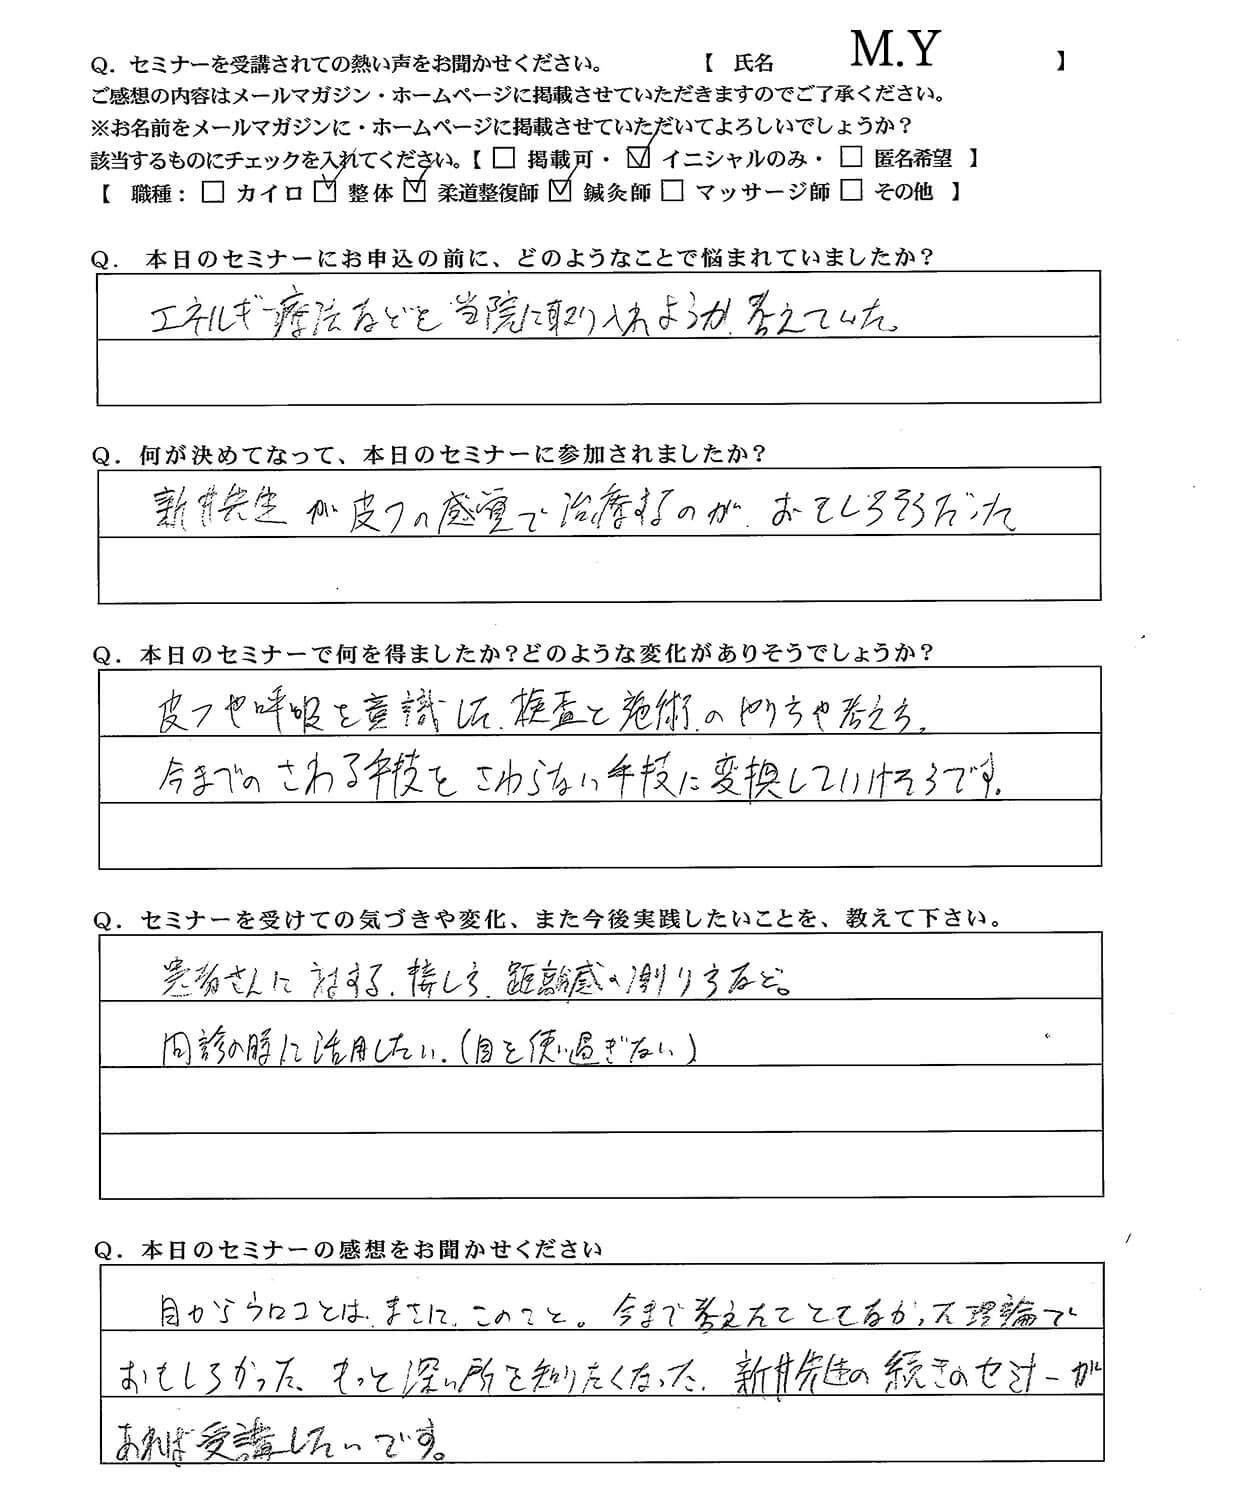 Q．セミナーを受講されての熱い声をお聞かせください。　【　氏名　M.Y　】
ご感想の内容はメールマガジン・ホームページに掲載させていただきますのでご了承ください。
※お名前をメールマガジンに・ホームページに掲載させていただいてよろしいでしょうか？
該当するものにチェックを入れてください。【 □ 掲載可・ ☑ イニシャルのみ・ □ 匿名希望 】
【　職種：□ カイロ ☑ 整体 ☑ 柔道整復師 ☑ 鍼灸師 □ マッサージ師 □ その他　】
Q．本日のセミナーにお申込の前に、どのようなことで悩まれていましたか？
エネルギー療法などを当院に取り入れようか、考えていた。
Q．何が決めてなって、本日のセミナーに参加されましたか？
新井先生が皮フの感覚で治療するのが、おもしろそうだった
Q．本日のセミナーで何を得ましたか？どのような変化がありそうでしょうか？
皮フや呼吸を意識した、検査と施術、のやり方や考え方。
今までのさわる手技をさわらない手技に変換していけそうです。
Q．セミナーを受けての気づきや変化、また今後実践したいことを、教えて下さい。
患者さんに対する、接し方、距離感の測り方など。
問診の時に活用したい。（目を使い過ぎない）
Q．本日のセミナーの感想をお聞かせください
目からウロコとは、まさに、このこと。今まで考えたこともなかった理論で
おもしろかった、もっと深い所を知りたくなった、新井先生の続きのセミナーが
あれば受講したいです。